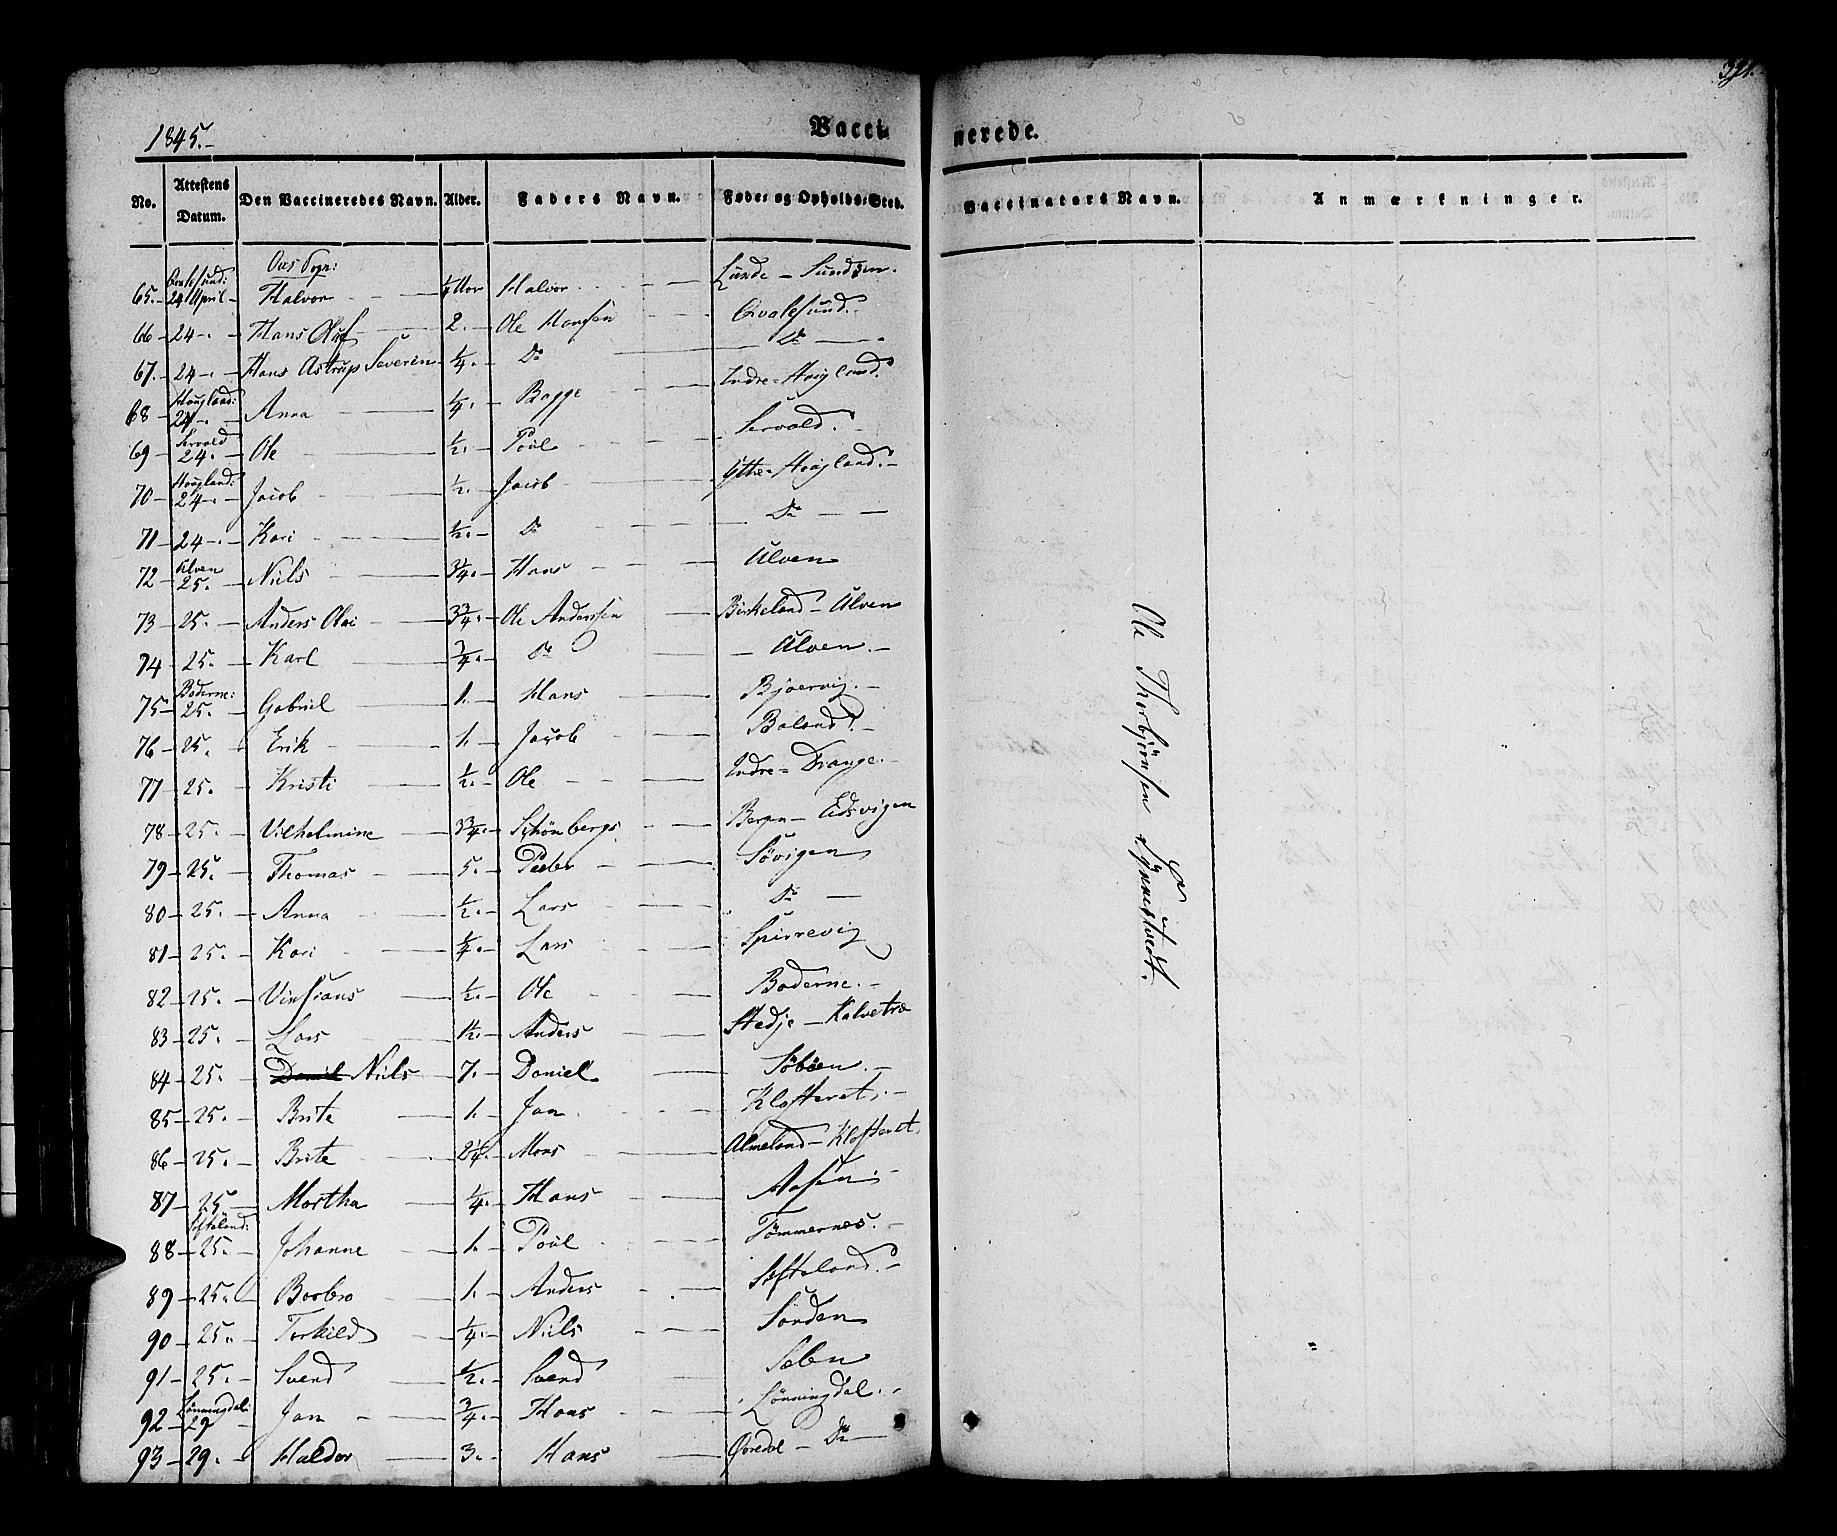 1845.
Vaccinerede.
No. Attestens Datum. Den Vaccineredes Navn. Alder. Faders Navn. Føde- og Opholds-Sted. Vaccinators Navn. Anmærkninger.
Oos Sogn:
65. 24 April Halvor ¼ Halvor Lunde - Sundøen.
66 24 Hans Oluf 2. Ole Hansen Qvalesund.
67. 24 Hans Astrup Severin ¼. Do Do
68 Hougland: 24 Anna ¼. Bagge Indre-Hougland.
69 Servold 24. Ole ½. Poul Servold.
70 Hougland: 24 Jacob ½. Jacob Ytre-Hougland.
71 24 Kari ½. Do Do
72 Ulven 25. Niels 3¼. Hans Ulven
73 25. Anders Olai 3¾. Ole Anderssen Birkeland - Ulven
74 25. Karl ¾. Do Ulven.
75 Boderne: 25. Gabriel 1. Hans Bjoervig.
76 25. Erik 1. Jacob Boland.
77 25. Kristi ½. Ole Indre-Drange.
78 25. Vilhelmine 3¾. Schönbergs Bergn - Eidsvigen
79 25. Thomas 5. Peder Søvigen
80 25. Anna ½. Lars Do
81 25. Kari ¼. Lars Spirrevig
82 25. Vinsians ½. Ole Boderne.
83 25. Lars 1½. Anders Stedje - Kalvetræ
84 25. Daniel Niels 7. Daniel Søbøen.
85 25. Brite 1. Jon Klosteret.
86 25. Brite 2¼. Mons Almeland - Klosteret.
87 25. Martha ¼. Hans Aasen
88 Seftaland: 25. Johanne 1. Poul Tømmernes.
89 25. Borbro 1. Anders Seftaland.
90 25. Torkild ¼. Niels Sørden
91 25. Svend ½. Svend Sælen
92 Lønningdal: 29 Jon ¾. Hans Lønningdal.
93 29. Haldor 3. Hans Øvredal - Do
Ole Thorbjörnsen